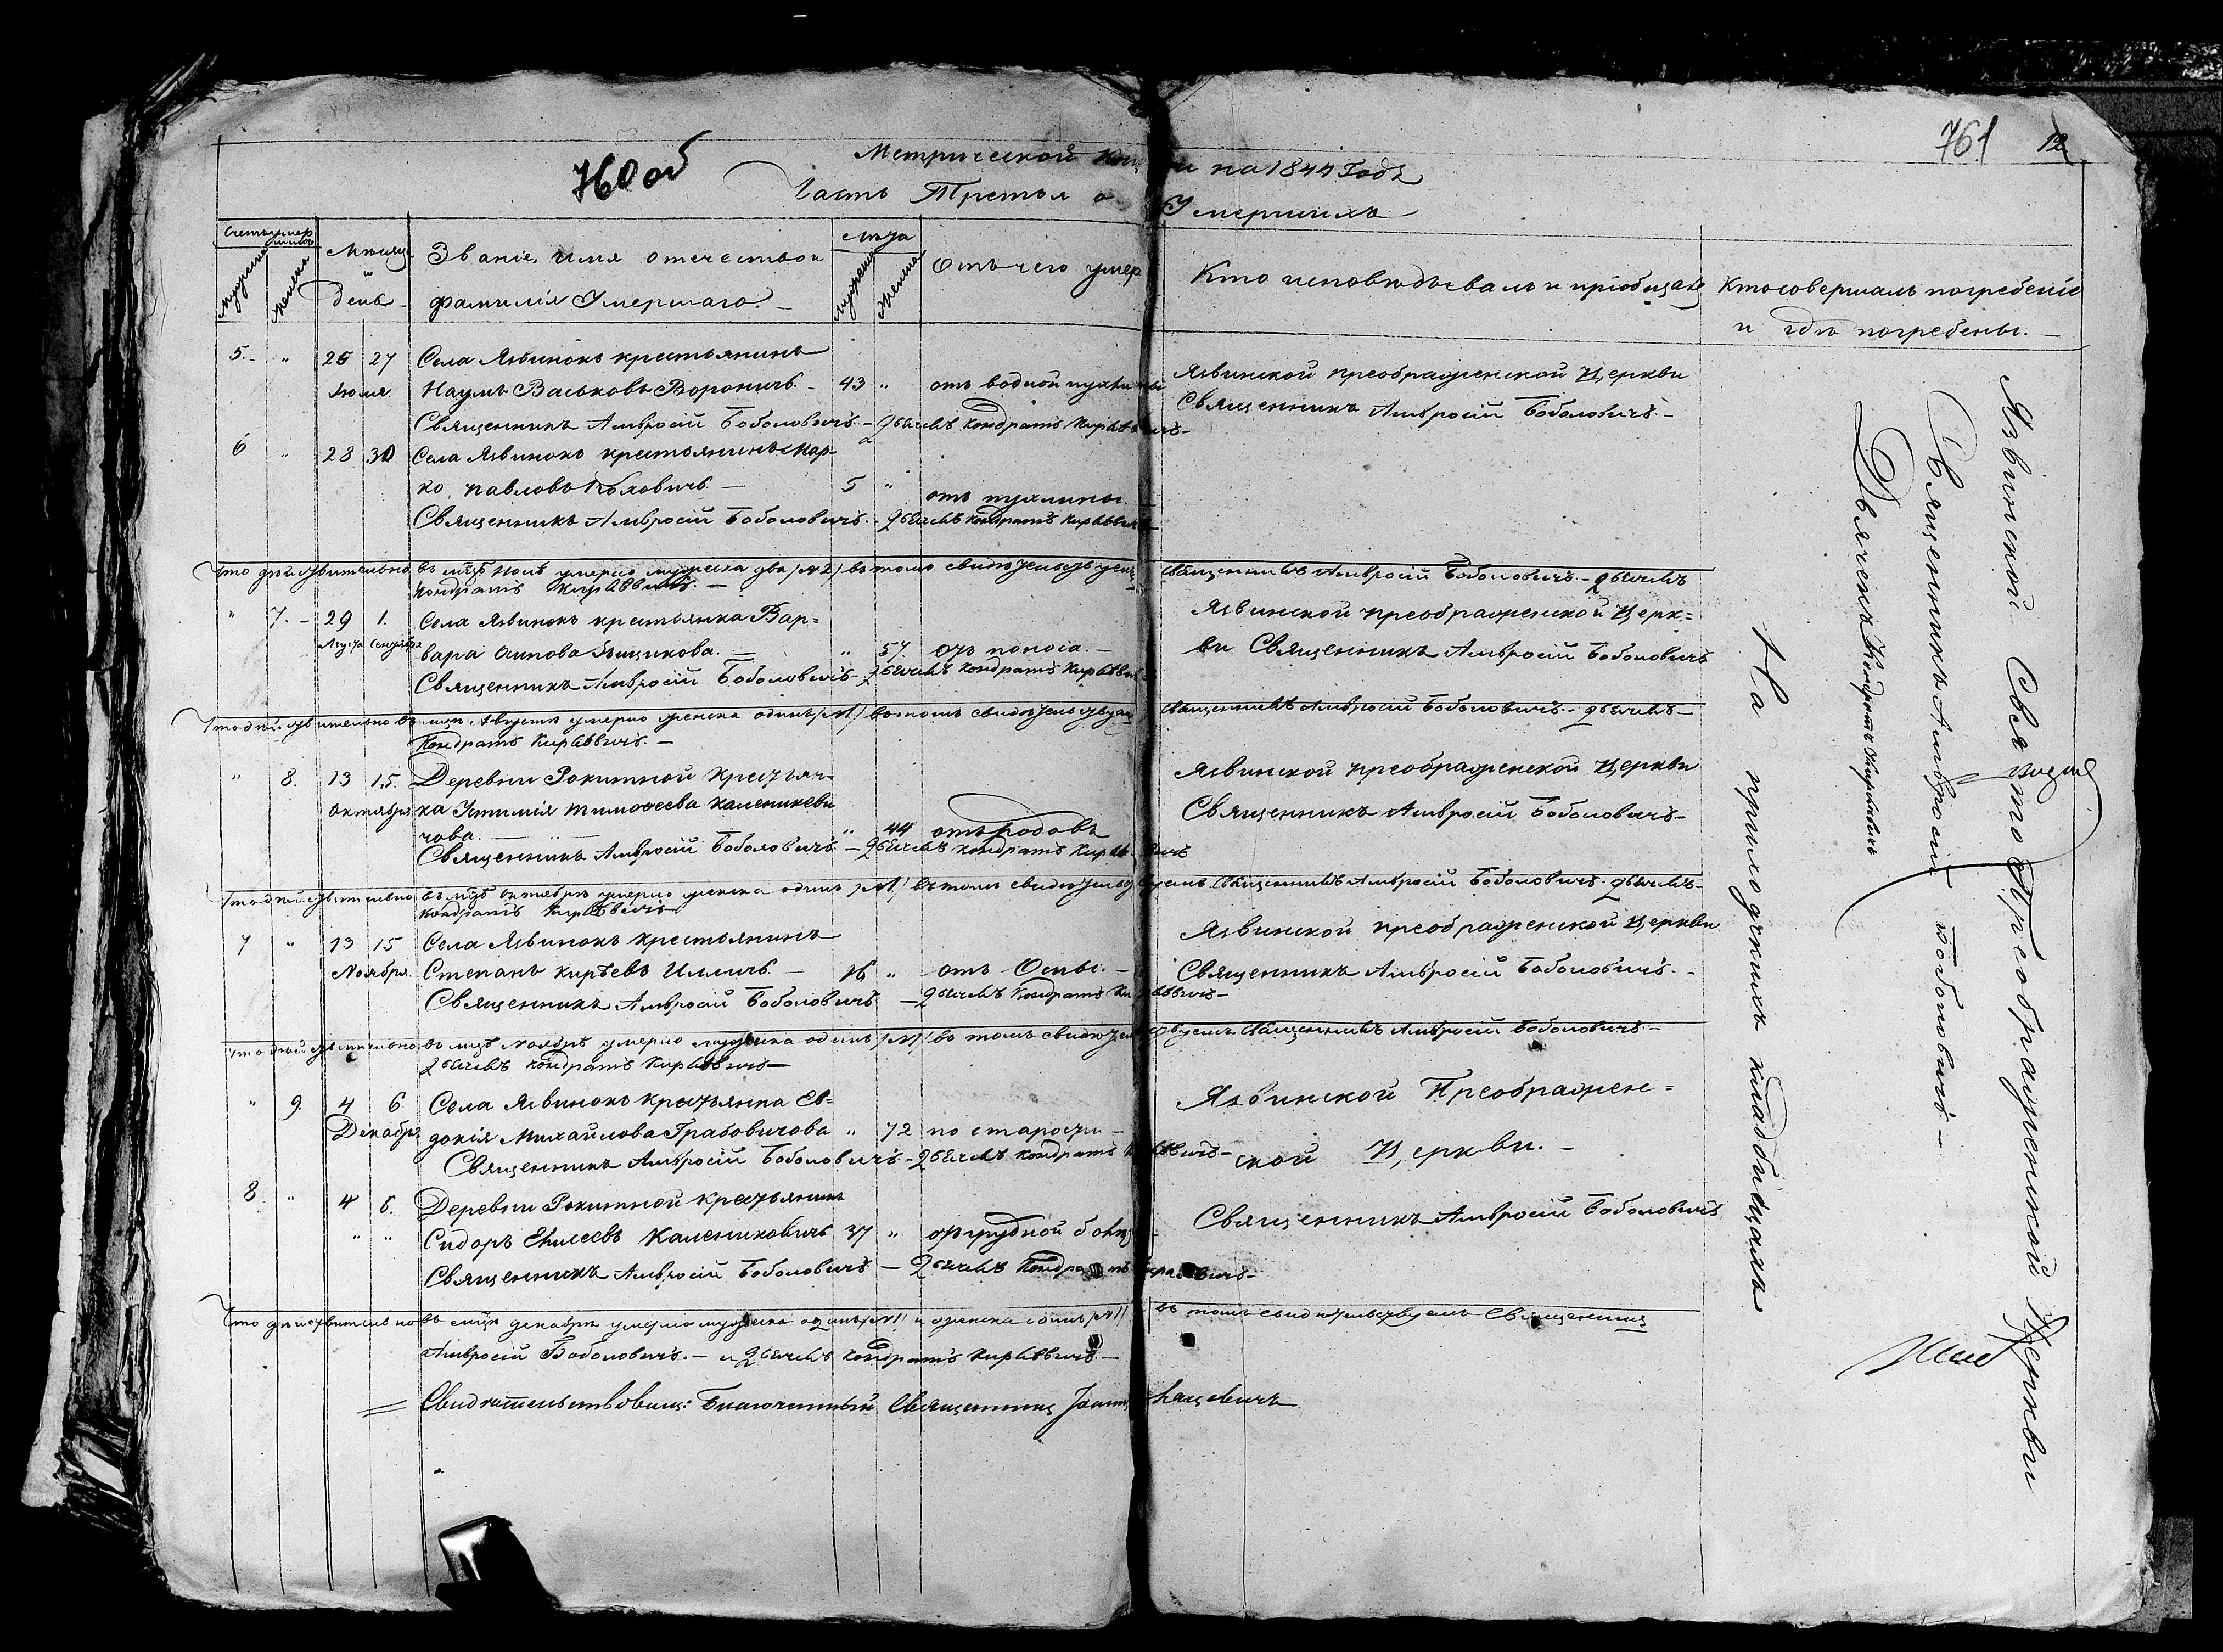 760 об
761
12
Метрической Книги на 1844 Годъ
Часть Третья о Умершихъ
Счетъ умершихъ
Мужеска
Женска
Мѣсяцъ и день
Званіе, имя отечество и фамилія Умершаго.
Лѣта
Мужеска
Женска
Отъ чего умеръ
Кто исповѣдывалъ и пріобщалъ
Кто совершалъ погребеніе и гдѣ погребены.
5. " 25 27 Села Язвинокъ крестьянинъ
Июля. Наумъ Васьковъ Вороничъ. - 43 " отъ водной пухлины
Священникъ Амвросій Боболовичъ. - Дьячекъ Кондратъ Кираевичъ -
Язвинской преображенской Церкви
Священникъ Амвросій Боболовичъ. -
6 " 28 30 Села Язвинокъ крестьянинъ Мар-
ко Павловъ - 5 " отъ пухлины
Священникъ Амвросій Боболовичъ. - Дьячекъ Кондратъ
Что дѣйствительно въ мцѣ Июлѣ умерло мужеска два /№2/ въ томъ свидѣтельствуемъ Священникъ Амвросій Боболовичъ. - Дьячекъ
Кондратъ -
" 7. - 29 1. Села Язвинокъ крестьянка Вар=
Августа Сентября вара Осипова " 57. отъ поноса. -
Священникъ Амвросій Боболовичъ - Дьячекъ Кондратъ
Язвинской преображенской Церк=
ви Священникъ Амвросій Боболовичъ
Что дѣйствительно въ мцѣ Августѣ умерло женска одинъ /№1/ въ томъ свидѣтельствуемъ Священникъ Амвросій Боболовичъ. - Дьячекъ -
Кондратъ Кираевичъ. -
" 8. 13 15. Деревни Рокитной Крестьян-
Октября ка Устимія Тимофеева Каленикеви
чова. " 44 отъ родовъ
Священникъ Амвросій Боболовичъ. - Дьячекъ Кондратъ Кираевичъ
Язвинской преображенской Церкви
Священникъ Амвросій Боболовичъ -
Что дѣйствительно въ мцѣ Октябрѣ умерло женска одинъ /№1/ въ томъ свидѣтельствуемъ Священникъ Амвросій Боболовичъ. Дьячекъ -
Кондратъ Кираевичъ -
7 " 13 15 Села Язвинокъ крестьянинъ
Ноября. Степанъ Киреевъ Иличъ. - " отъ Оспы. -
Священникъ Амвросій Боболовичъ - Дьячекъ Кондратъ Кираевичъ -
Язвинской преображенской Церкви
Священникъ Амвросій Боболовичъ. -
Что дѣйствительно въ мцѣ Ноябрѣ умерло мужеска одинъ /№1/ въ томъ свидѣтельствуемъ Священникъ Амвросій Боболовичъ. -
Дьячекъ Кондратъ Кираевичъ -
" 9. 4 6 Села Язвинокъ Крестьянка Ев=
Декабря докія Михайлова Грабовичова " 72 по старости -
Священникъ Амвросій Боболовичъ. - Дьячекъ Кондратъ Кираевичъ -
Язвинской Преображен=
ской Церкви. -
8. " 4 6. Деревни Рокитной Крестьянинъ
" " Сидоръ Елисеевъ Калениковичъ 37 " отъ грудной боли
Священникъ Амвросій Боболовичъ - Дьячекъ Кондратъ Кираевичъ -
Священникъ Амвросій Боболовичъ
Что дѣйствительно въ мцѣ декабрѣ умерло мужеска одинъ /№1/ и женска одинъ /№1/ въ томъ свидѣтельствуемъ Священникъ
Амвросій Боболовичъ. - и Дьячекъ Кондратъ Кираевичъ. -
Свидѣтельствовалъ: Благочинный Священникъ Іоаннъ
Язвинской Свято Преображенской Церкви
Священникъ Амвросій Боболовичъ -
Дьячекъ Кондратъ Кираевичъ
На приходскихъ кладбищахъ